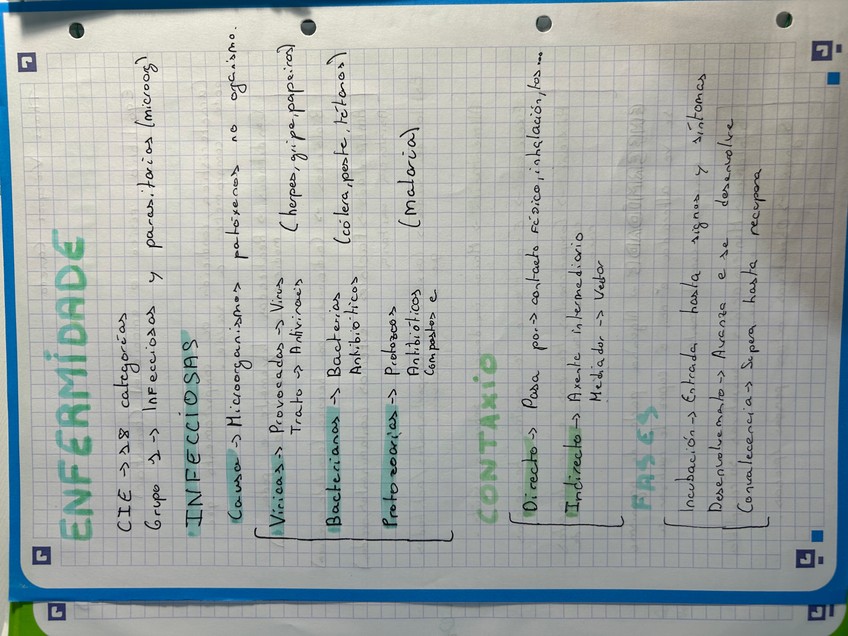 ENFERMIDADE
CIE -> 18 categorías
Grupo 1 -> Infecciosas y parasitarias (microorg)
INFECCIOSAS
Causa -> Microorganismos patóxenos no organismo.
Víricas -> Provocadas -> Virus (herpes, gripe, papeiras)
Trato -> Antivirais
Bacterianas -> Bacterias (cólera, peste, tétanos)
Antibióticos
Protozoarias -> Protozoos (malaria)
Antibióticos
Compostos e
CONTAXIO
Directo -> Pasa por -> contacto físico, inhalación, tos...
Indirecto -> Axente intermediario
Mediador -> Vector
FASES
Incubación -> Entrada hasta signos y síntomas
Desenvolvemento -> Avanza e se desenvolve
Convalecencia -> Supera hasta recupera